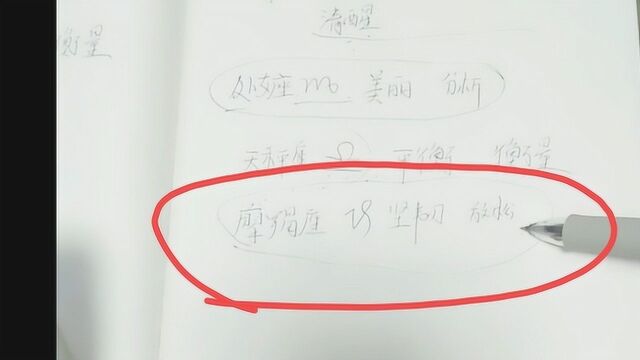 衡量
清醒
处女座 ♍ 美丽 分析
天秤座 ♎ 平衡 衡量
摩羯座 ♑ 坚韧 放松